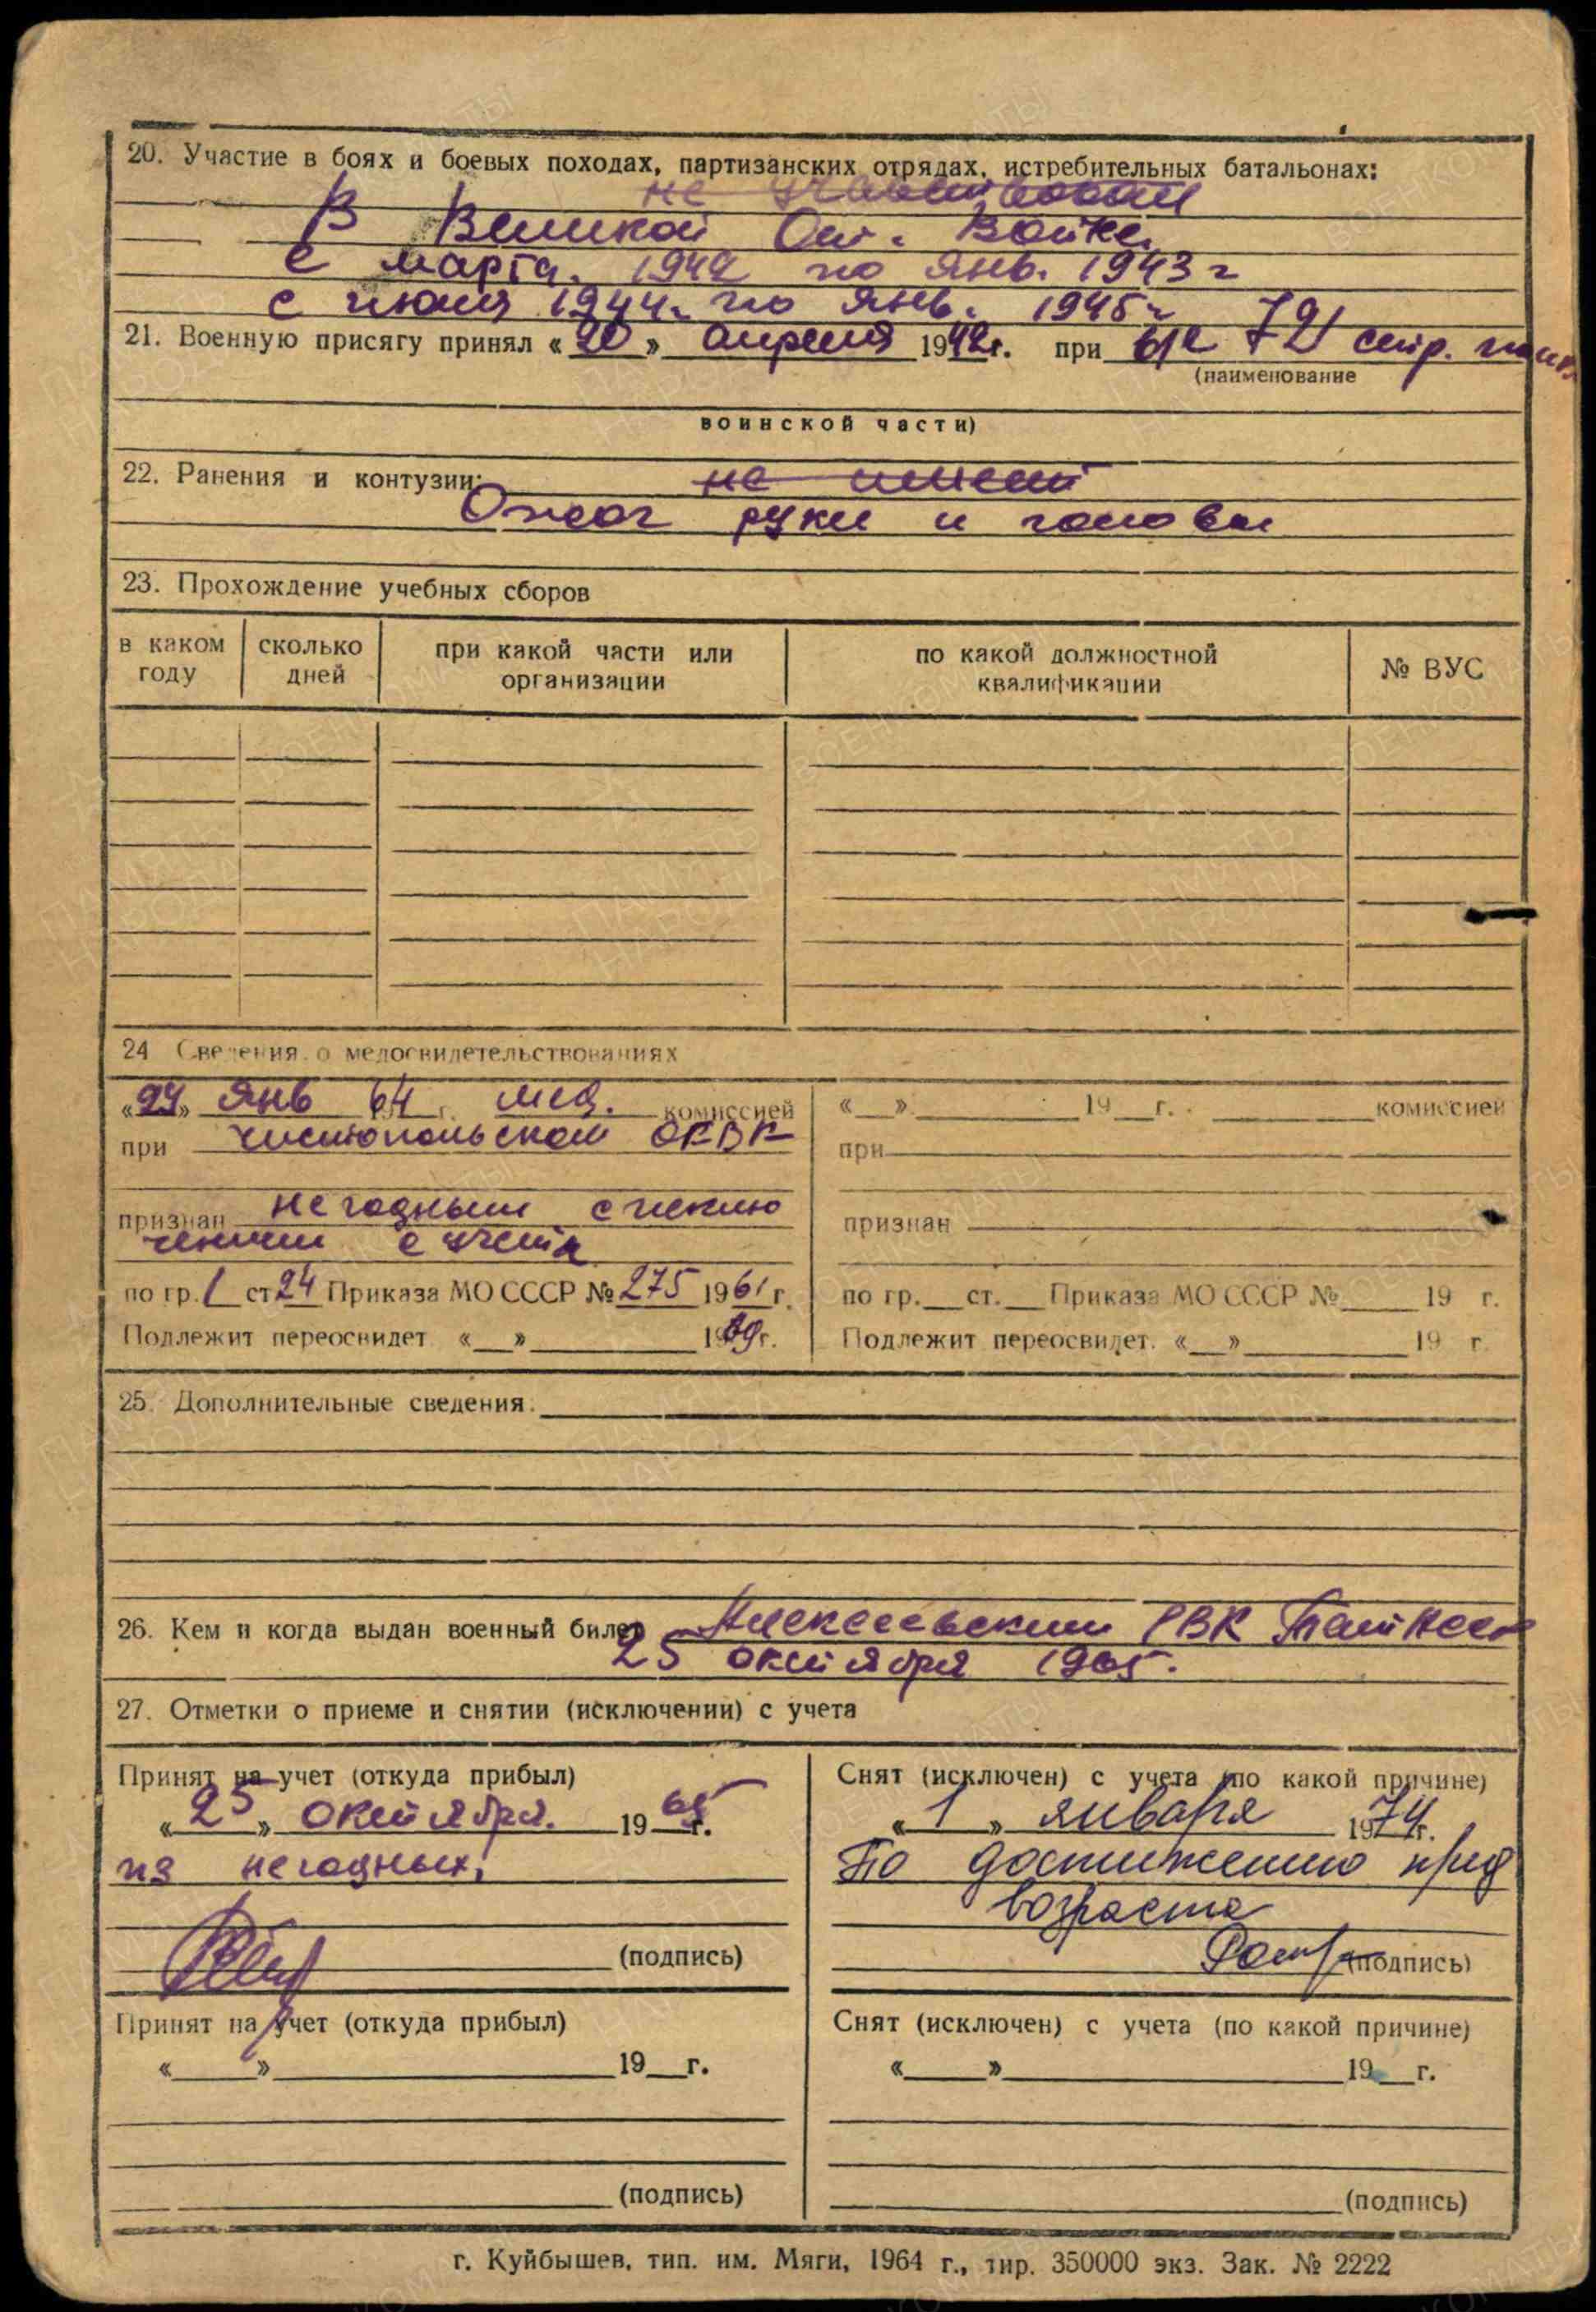 20. Участие в боях и боевых походах, партизанских отрядах, истребительных батальонах:
не участвовал
В Великой От. Войне
с марта. 1942 по янв. 1943 г
с июля 1944 г. по янв. 1945 г
21. Военную присягу принял « 20 » апреля 1942 г. при 72 стр. полк
(наименование
воинской части)
22. Ранения и контузии: не имеет
Ожог руки и головы
23. Прохождение учебных сборов
в каком году
сколько дней
при какой части или организации
по какой должностной квалификации
№ ВУС
24 Сведения о медосвидетельствованиях
«29» янв 64 г. мед. комиссией
при чистопольском ОРВК
признан негодным с исклю
чением с учета
по гр. 1 ст 24 Приказа МО СССР № 275 1961 г.
Подлежит переосвидет. « » 1969г.
« » 19 г. комиссией
при
признан
по гр. ст. Приказа МО СССР № 19 г.
Подлежит переосвидет. « » 19 г.
25. Дополнительные сведения:
26. Кем и когда выдан военный билет Алексеевским РВК
25 октября 1965.
27. Отметки о приеме и снятии (исключении) с учета
Принят на учет (откуда прибыл)
« 25 » октября. 1965 г.
из негодных.
(подпись)
Снят (исключен) с учета (по какой причине)
« 1 » января 1974 г.
По достижению пред
возраста
(подпись)
Принят на учет (откуда прибыл)
« » 19 г.
(подпись)
Снят (исключен) с учета (по какой причине)
« » 19 г.
(подпись)
г. Куйбышев, тип. им. Мяги, 1964 г., тир. 350000 экз. Зак. № 2222